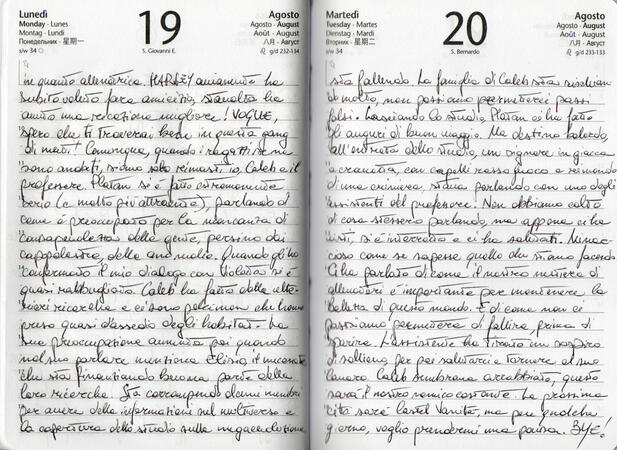 Lunedì
Monday · Lunes
Montag · Lundi
Понедельник · 星期一
s/w 34
19
S. Giovanni E.
Agosto
Agosto · August
Août · August
八月 · Август
g/d 232-134
in quanto allenatrice. HARLEY ovviamente ha
subito voluto fare amicizia, stavolta ha
avuto una reazione migliore! VOGUE,
spero che ti troverai bene in questa gang
di matti! Comunque, quando i ragazzi se ne
sono andati, siamo solo rimasti io, Caleb e il
professore. Platan si è fatto estremamente
serio (e molto più attraente), parlando di
come è preoccupato per la mancanza di
consapevolezza della gente, persino dai
capopalestra, delle anomalie. Quando gli ho
confermato il mio dialogo con Violetta si è
quasi rabbugliato. Caleb ha fatto delle
ricerche e ci sono pokémon che hanno
preso quasi d'assedio degli habitat. La
sua preoccupazione aumenta poi quando
nel suo parlare menziona Elisio, il
che sta finanziando buona parte delle
loro ricerche. Sta corrompendo alcuni membri
per avere delle informazioni sul multiverso e
la copertura dello studio sulla megaevoluzione
Martedì
Tuesday · Martes
Dienstag · Mardi
Вторник · 星期二
s/w 34
20
S. Bernardo
Agosto
Agosto · August
Août · August
八月 · Август
g/d 233-133
sta fallendo. La famiglia di Caleb sta
molto, non possiamo permetterci passi
falsi. Lasciando lo studio, Platan ci ha fatto
gli auguri di buon viaggio. Ma destino balordo,
all'entrata dello studio, un signore in giacca
e cravatta, con capelli rosso fuoco e
d'una criniera, stava parlando con uno degli
assistenti del professore! Non abbiamo colto
di cosa stessero parlando, ma appena ci ha
visti, si è interrotto e ci ha salutati. Minac-
cioso come se sapesse quello che stiamo facendo.
Ci ha parlato di come il nostro mestiere di
allenatori è importante per mantenere la
bellezza di questo mondo. E di come non ci
possiamo permettere di fallire, prima di
sparire. L'assistente ha tirato un sospiro
di sollievo, per poi salutarci e tornare al suo
lavoro. Caleb sembrava arrabbiato, questo
sarà il nostro nemico costante. La prossima
città sarà Castel Vanità, ma per qualche
giorno, voglio prendermi una pausa. BYE!